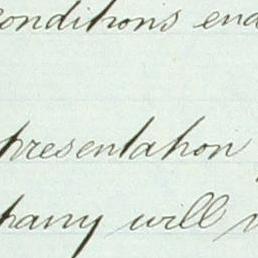 conditions end
presentation
pany will